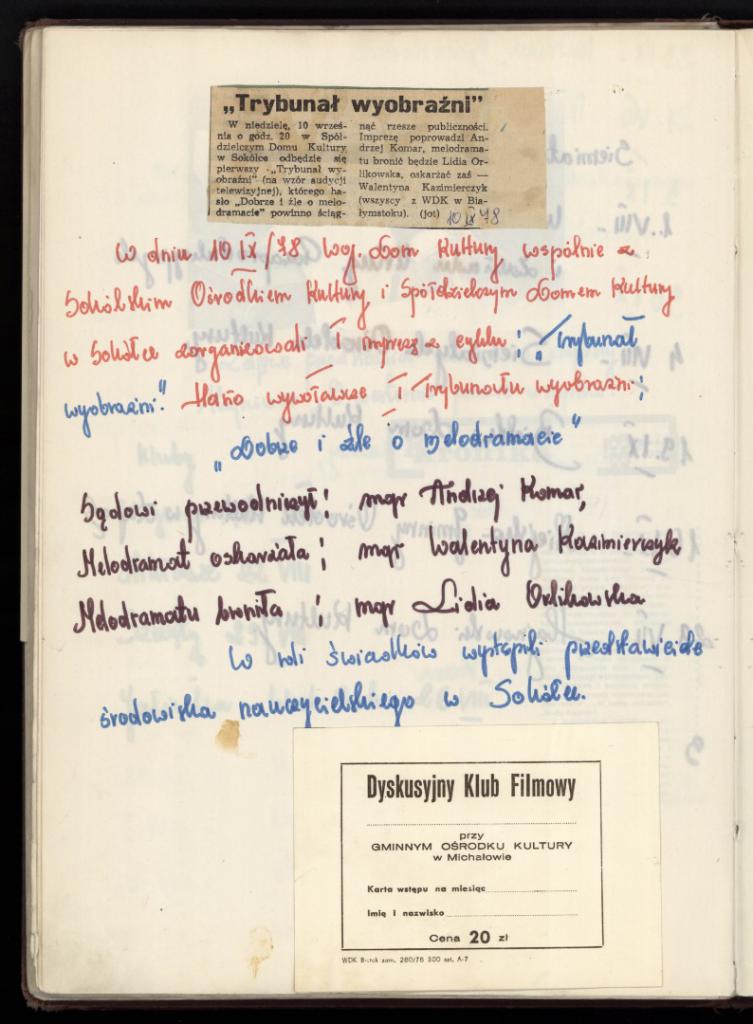 „Trybunał wyobraźni”
W niedzielę, 10 wrześ-
nia o godz. 20 w Spół-
dzielczym Domu Kultury
w Sokółce odbędzie się
pierwszy „Trybunał wy-
obraźni” (na wzór audycji
telewizyjnej), którego ha-
sło „Dobrze i źle o melo-
dramacie” powinno ściąg-
nąć rzesze publiczności.
Imprezę poprowadzi An-
drzej Komar, melodrama-
tu bronić będzie Lidia Or-
likowska, oskarżać zaś —
Walentyna Kazimierczyk
(wszyscy z WDK w Bia-
łymstoku). (jot) 10 IX 78
W dniu 10 IX/78 Woj. Dom Kultury wspólnie z
Sokólskim Ośrodkiem Kultury i Spółdzielczym Domem Kultury
w Sokółce zorganizowali I imprezę z cyklu: „Trybunał
wyobraźni." Hasło wywoławcze I Trybunału wyobraźni:
„Dobrze i źle o melodramacie"
Sądowi przewodniczył: mgr Andrzej Komar,
Melodramat oskarżała: mgr Walentyna Kazimierczyk
Melodramatu broniła: mgr Lidia Orlikowska
W roli świadków wystąpili przedstawiciele
środowiska nauczycielskiego w Sokółce.
Dyskusyjny Klub Filmowy
przy
GMINNYM OŚRODKU KULTURY
w Michałowie
Karta wstępu na miesiąc
Imię i nazwisko
Cena 20 zł
WDK B-stok zam. 280/76 300 szt. A-7